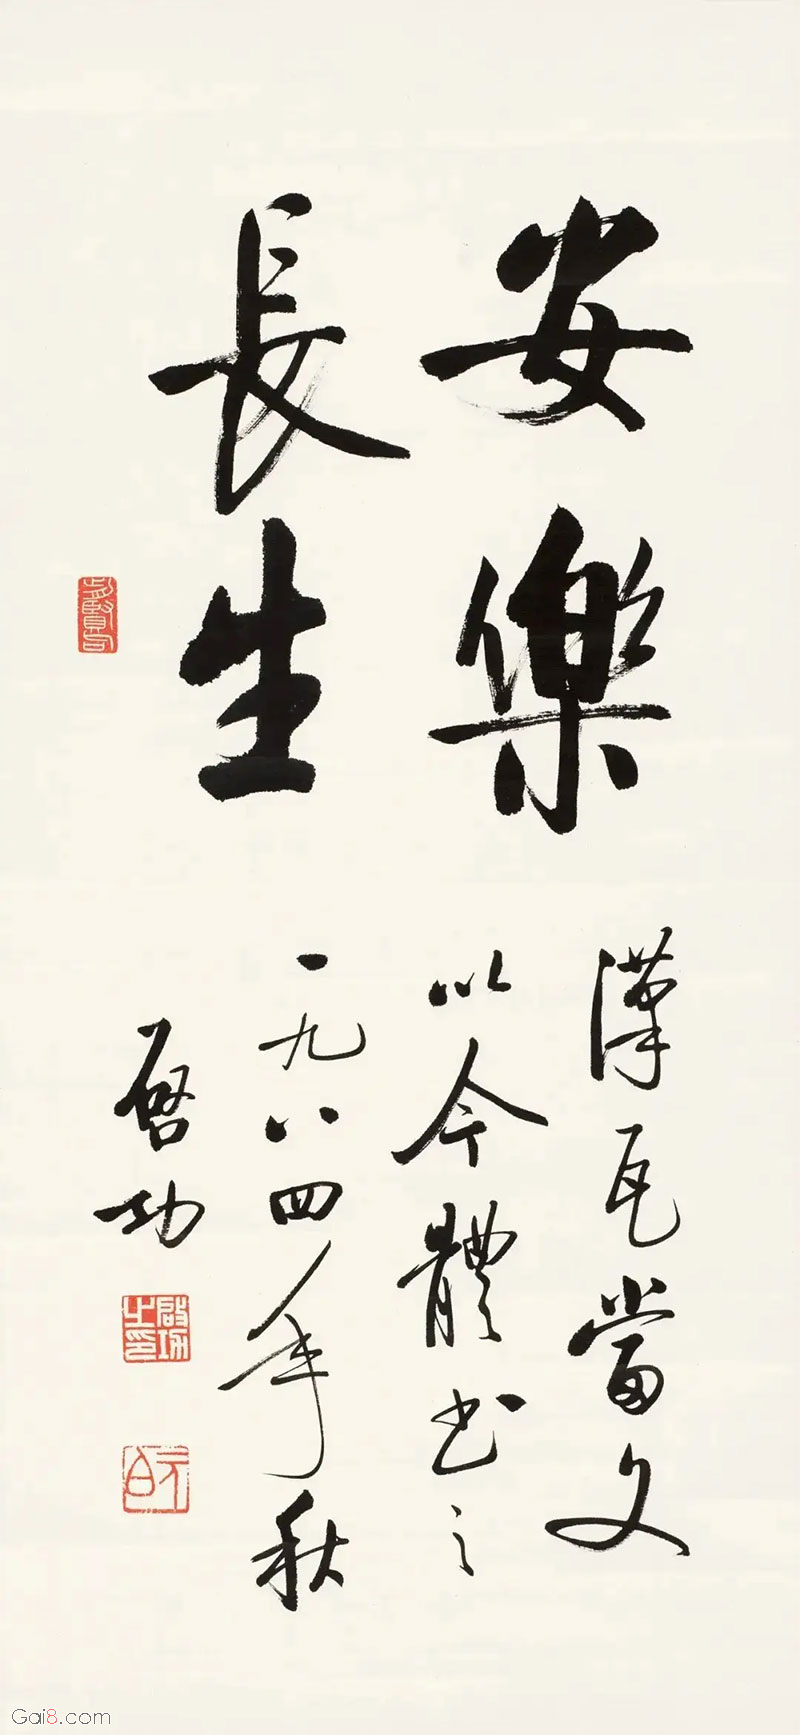 安樂
長生
漢瓦當文
以今體书之
一九八四年秋
啓功
啟功之印
Gai8.com